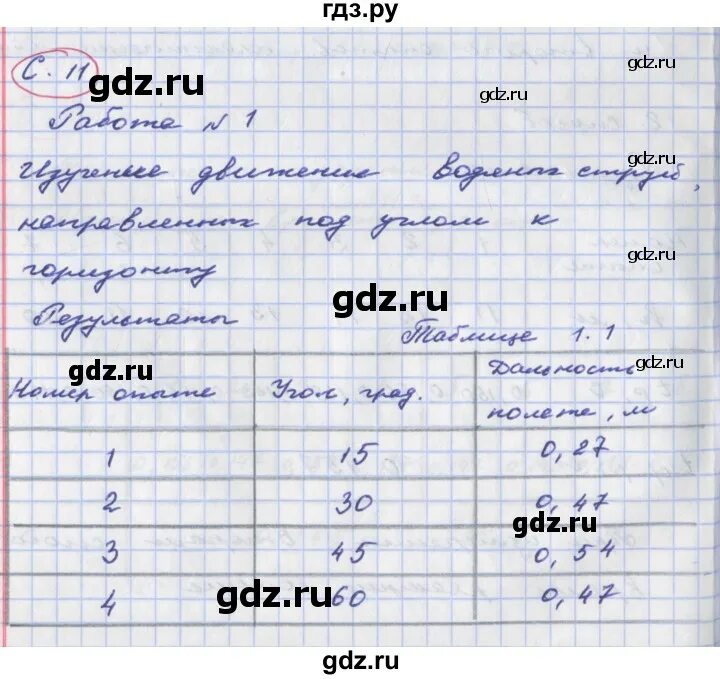 гдз.ру
С. 11
gdz.ru
gdz.ru
gdz.ru
Работа №1
Изучение движения водяных струй,
gdz.ru
направленных под углом к
gdz.ru
горизонту
gdz.ru
Результаты
Таблица 1.1
gdz.ru
gdz.ru
Номер опыта Угол, град. Дальность полета, м
1 15 0,27
2 30 0,47
gdz.ru
3 45 0,54
4 60 0,47
gdz.ru
gdz.ru